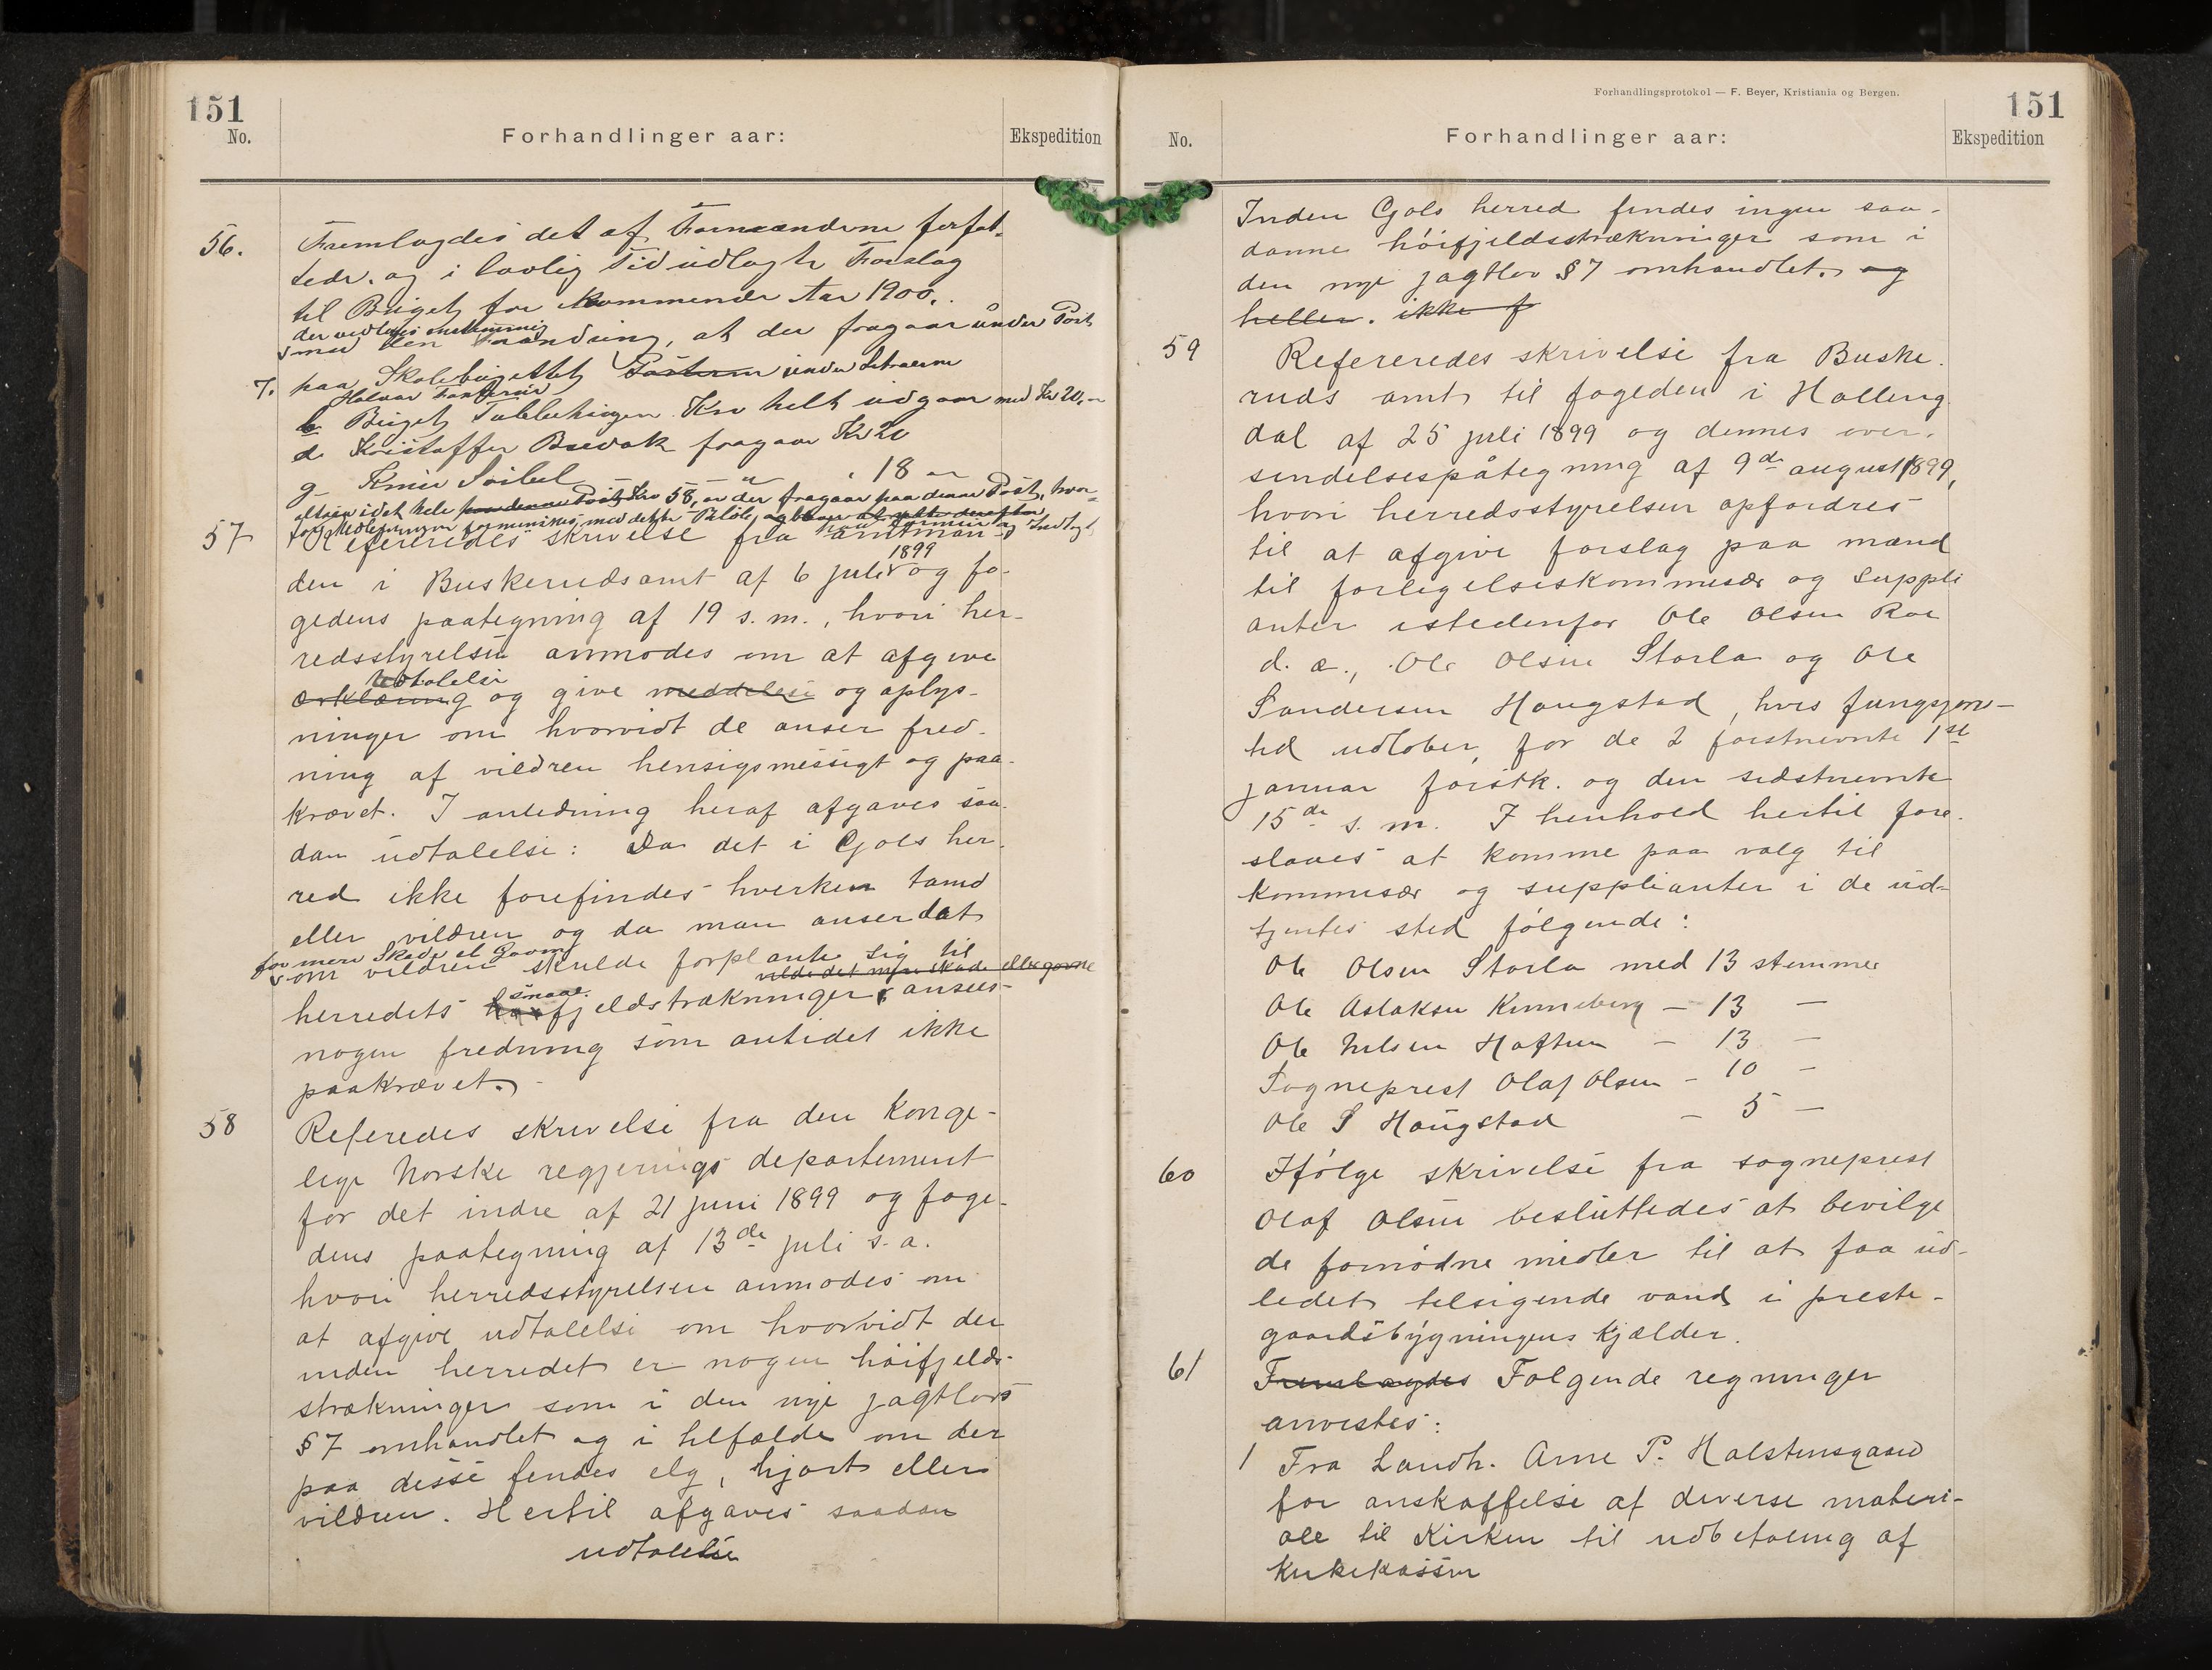 151
No.
Forhandlinger aar:
Ekspedition
56.
Fremlagdes det af Formændene forfat-
tede og i lovlig Tid udlagte Forslag
til Buget for kommende Aar 1900.
der vedtages enstemmig
med den Forandring, at der fragaar under Post
7. paa Skolebugettet Posterne under Litraerne
Halvor
b Buget Kro helt udgaar med Kr 20,-
d Kristoffer fragaar Kr 20
g - 18 -
altsaa i det hele Kro 58, der fragaar paa denne Post, hvor-
med dette Beløb,
57
Refereredes skrivelse fra amtman-
den i Buskerudsamt af 6 juli 1899 og fo-
gedens paategning af 19 s. m., hvori her-
redsstyrelsen anmodes om at afgive
Udtalelse
erklæring og give meddelese og oplys-
ninger om hvorvidt de anser fred-
ning af vildren hensigsmessigt og paa-
krævet. I anledning heraf afgaves saa-
dan udtalelse: Da det i Gols her-
red ikke forefindes hverken tamd
eller vildren og da man anser det
for mere Skade et Gavn
om vildren skulde forplante sig til
vilde det mere skade eller gavne
herredets smaa fjeldstrækninger, ansees
nogen fredning som antidet ikke
paakrævet. -
58
Referedes skrivelse fra den Konge-
lige Norske regjerings departement
for det indre af 21 juni 1899 og foge-
dens paategning af 13de juli s. a.
hvori herredsstyrelsen anmodes om
at afgive udtalelse om hvorvidt der
inden herredet er nogen høifjelds-
strækninger som i den nye jagtlovs
§ 7 omhandlet og i tilfælde om der
paa disse findes elg, hjort eller
vildren. Hertil afgaves saadan
udtalelse
Forhandlingsprotokol — F. Beyer, Kristiania og Bergen.
151
No.
Forhandlinger aar:
Ekspedition
Inden Gols herred findes ingen saa-
danne høifjeldsstrækninger som i
den nye jagtlov § 7 omhandlet. og
heller. ikke f
59
Refereredes skrivelse fra Buske-
ruds amt til fogeden i Halling
dal af 25 juli 1899 og dennes over-
sendelsespåtegning af 9de august 1899,
hvori herredsstyrelsen opfordres
til at afgive forslag paa mænd
til forligelseskommisær og suppli
anter istedenfor Ole Olsen Roe
d. æ., Ole Olsen Storla og Ole
Sandersen Haugstad, hvis fungsjons-
tid udløber, for de 2 førstnevnte 1ste
januar førstk. og den sidstnevnte
15de s. m. I henhold hertil fore-
slaaes at komme paa valg til
kommisær og supplianter i de ud-
tjentes sted følgende:
Ole Olsen Storla med 13 stemmer
Ole Aslaksen Kinneberg — 13 —
Ole Nilsen Haftun — 13 —
Sogneprest Olaf Olsen — 10 —
Ole S Haugstad — 5 —
60
Ifølge skrivelse fra sogneprest
Olaf Olsen besluttedes at bevilge
de fornødne midler til at faa ud-
ledet tilsigende vand i preste-
gaardsbygningens kjælder.
61
Fremlagdes Følgende regninger
anvistes:
1 Fra Landh. Arne P. Halstensgaard
for anskaffelse af diverse materi-
ale til Kirken til udbetaling af
Kirkekassen